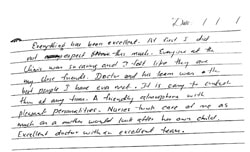 Date / / /
Everything has been excellent. At first I did
not expect this much. Everyone at the
Clinic was so caring and I felt like they are
my close friends. Doctor and his team was the
best people I have ever met. It is easy to contact
them at any time. A friendly atmosphere with
pleasant personalities. Nurses took care of me as
much as a mother would look after her own child.
Excellent doctor with an excellent team.